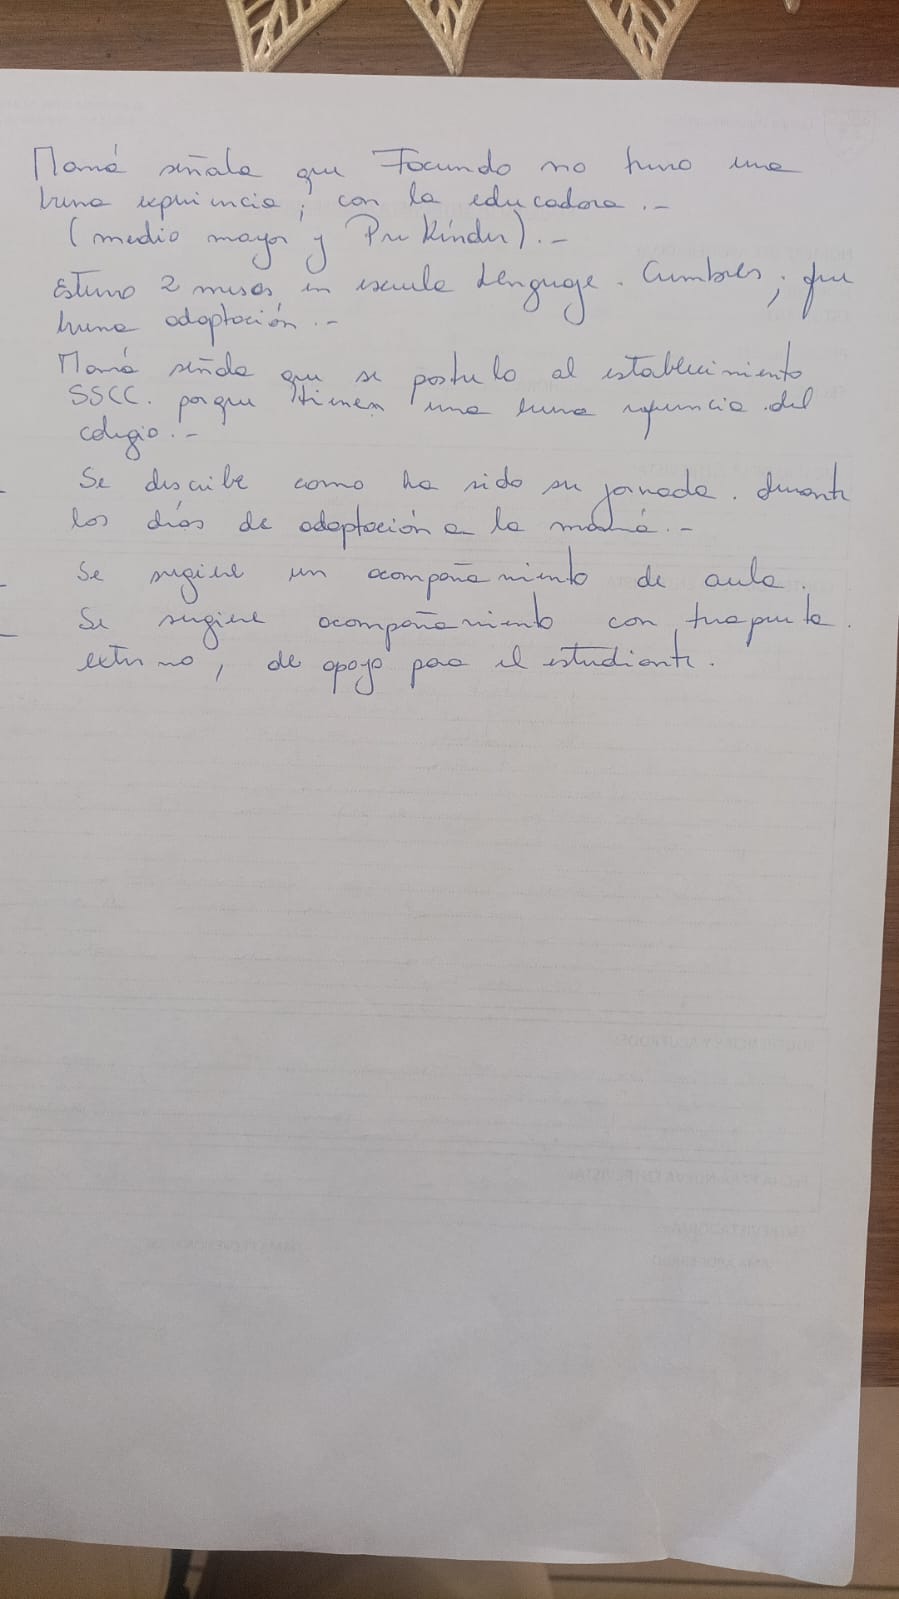 Mamá señala que Facundo no tuvo una
buena experiencia, con la educadora.-
(medio mayor y Pre Kínder).-
Estuvo 2 meses en escuela Lenguaje. Cumbres, que
buena adaptación.-
Mamá señala que se postulo al establecimiento
SSCC. porque tienen una buena referencia del
colegio.-
- Se describe como ha sido su jornada. durante
los días de adaptación a la mamá.-
- Se sugiere un acompañamiento de aula.
- Se sugiere acompañamiento con terapeuta.
externo, de apoyo para el estudiante.